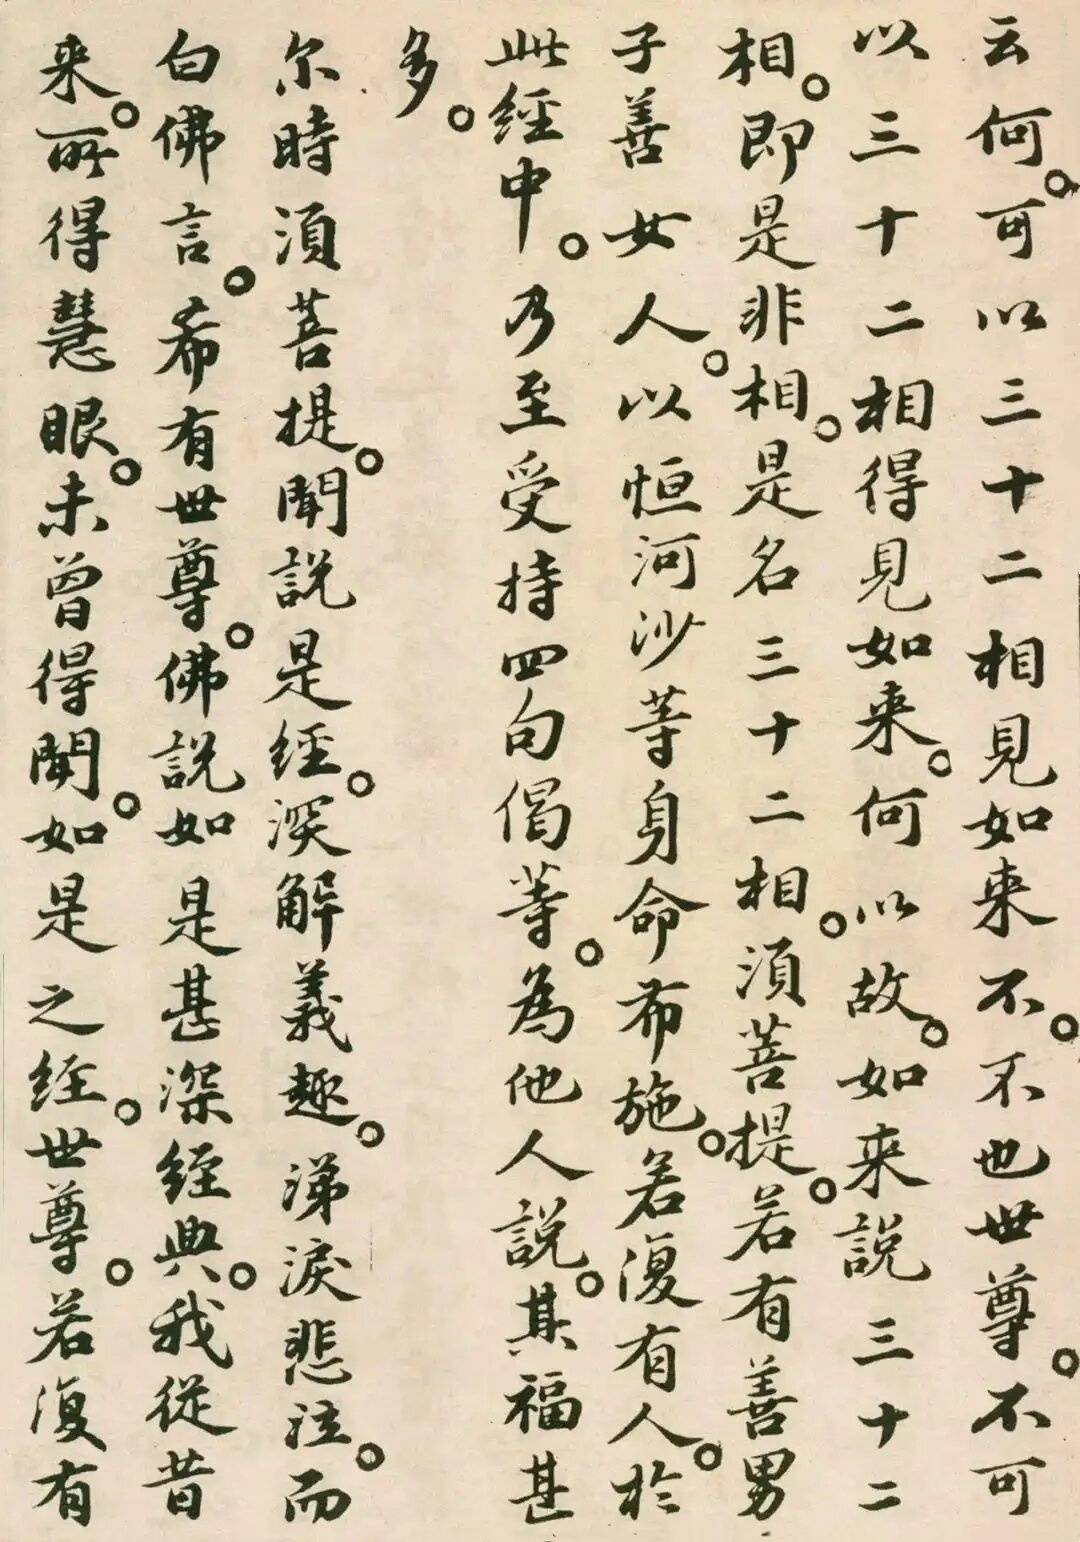 云何。可以三十二相見如来不。不也世尊。不可
以三十二相得見如来。何以故。如来説三十二
相。即是非相。是名三十二相。須菩提。若有善男
子善女人。以恒河沙等身命布施。若復有人。於
此經中。乃至受持四句偈等。為他人説。其福甚
多。
尔時須菩提。聞説是經。深解義趣。涕淚悲泣。而
白佛言。希有世尊。佛説如是甚深經典。我從昔
来。所得慧眼。未曾得聞。如是之經。世尊。若復有